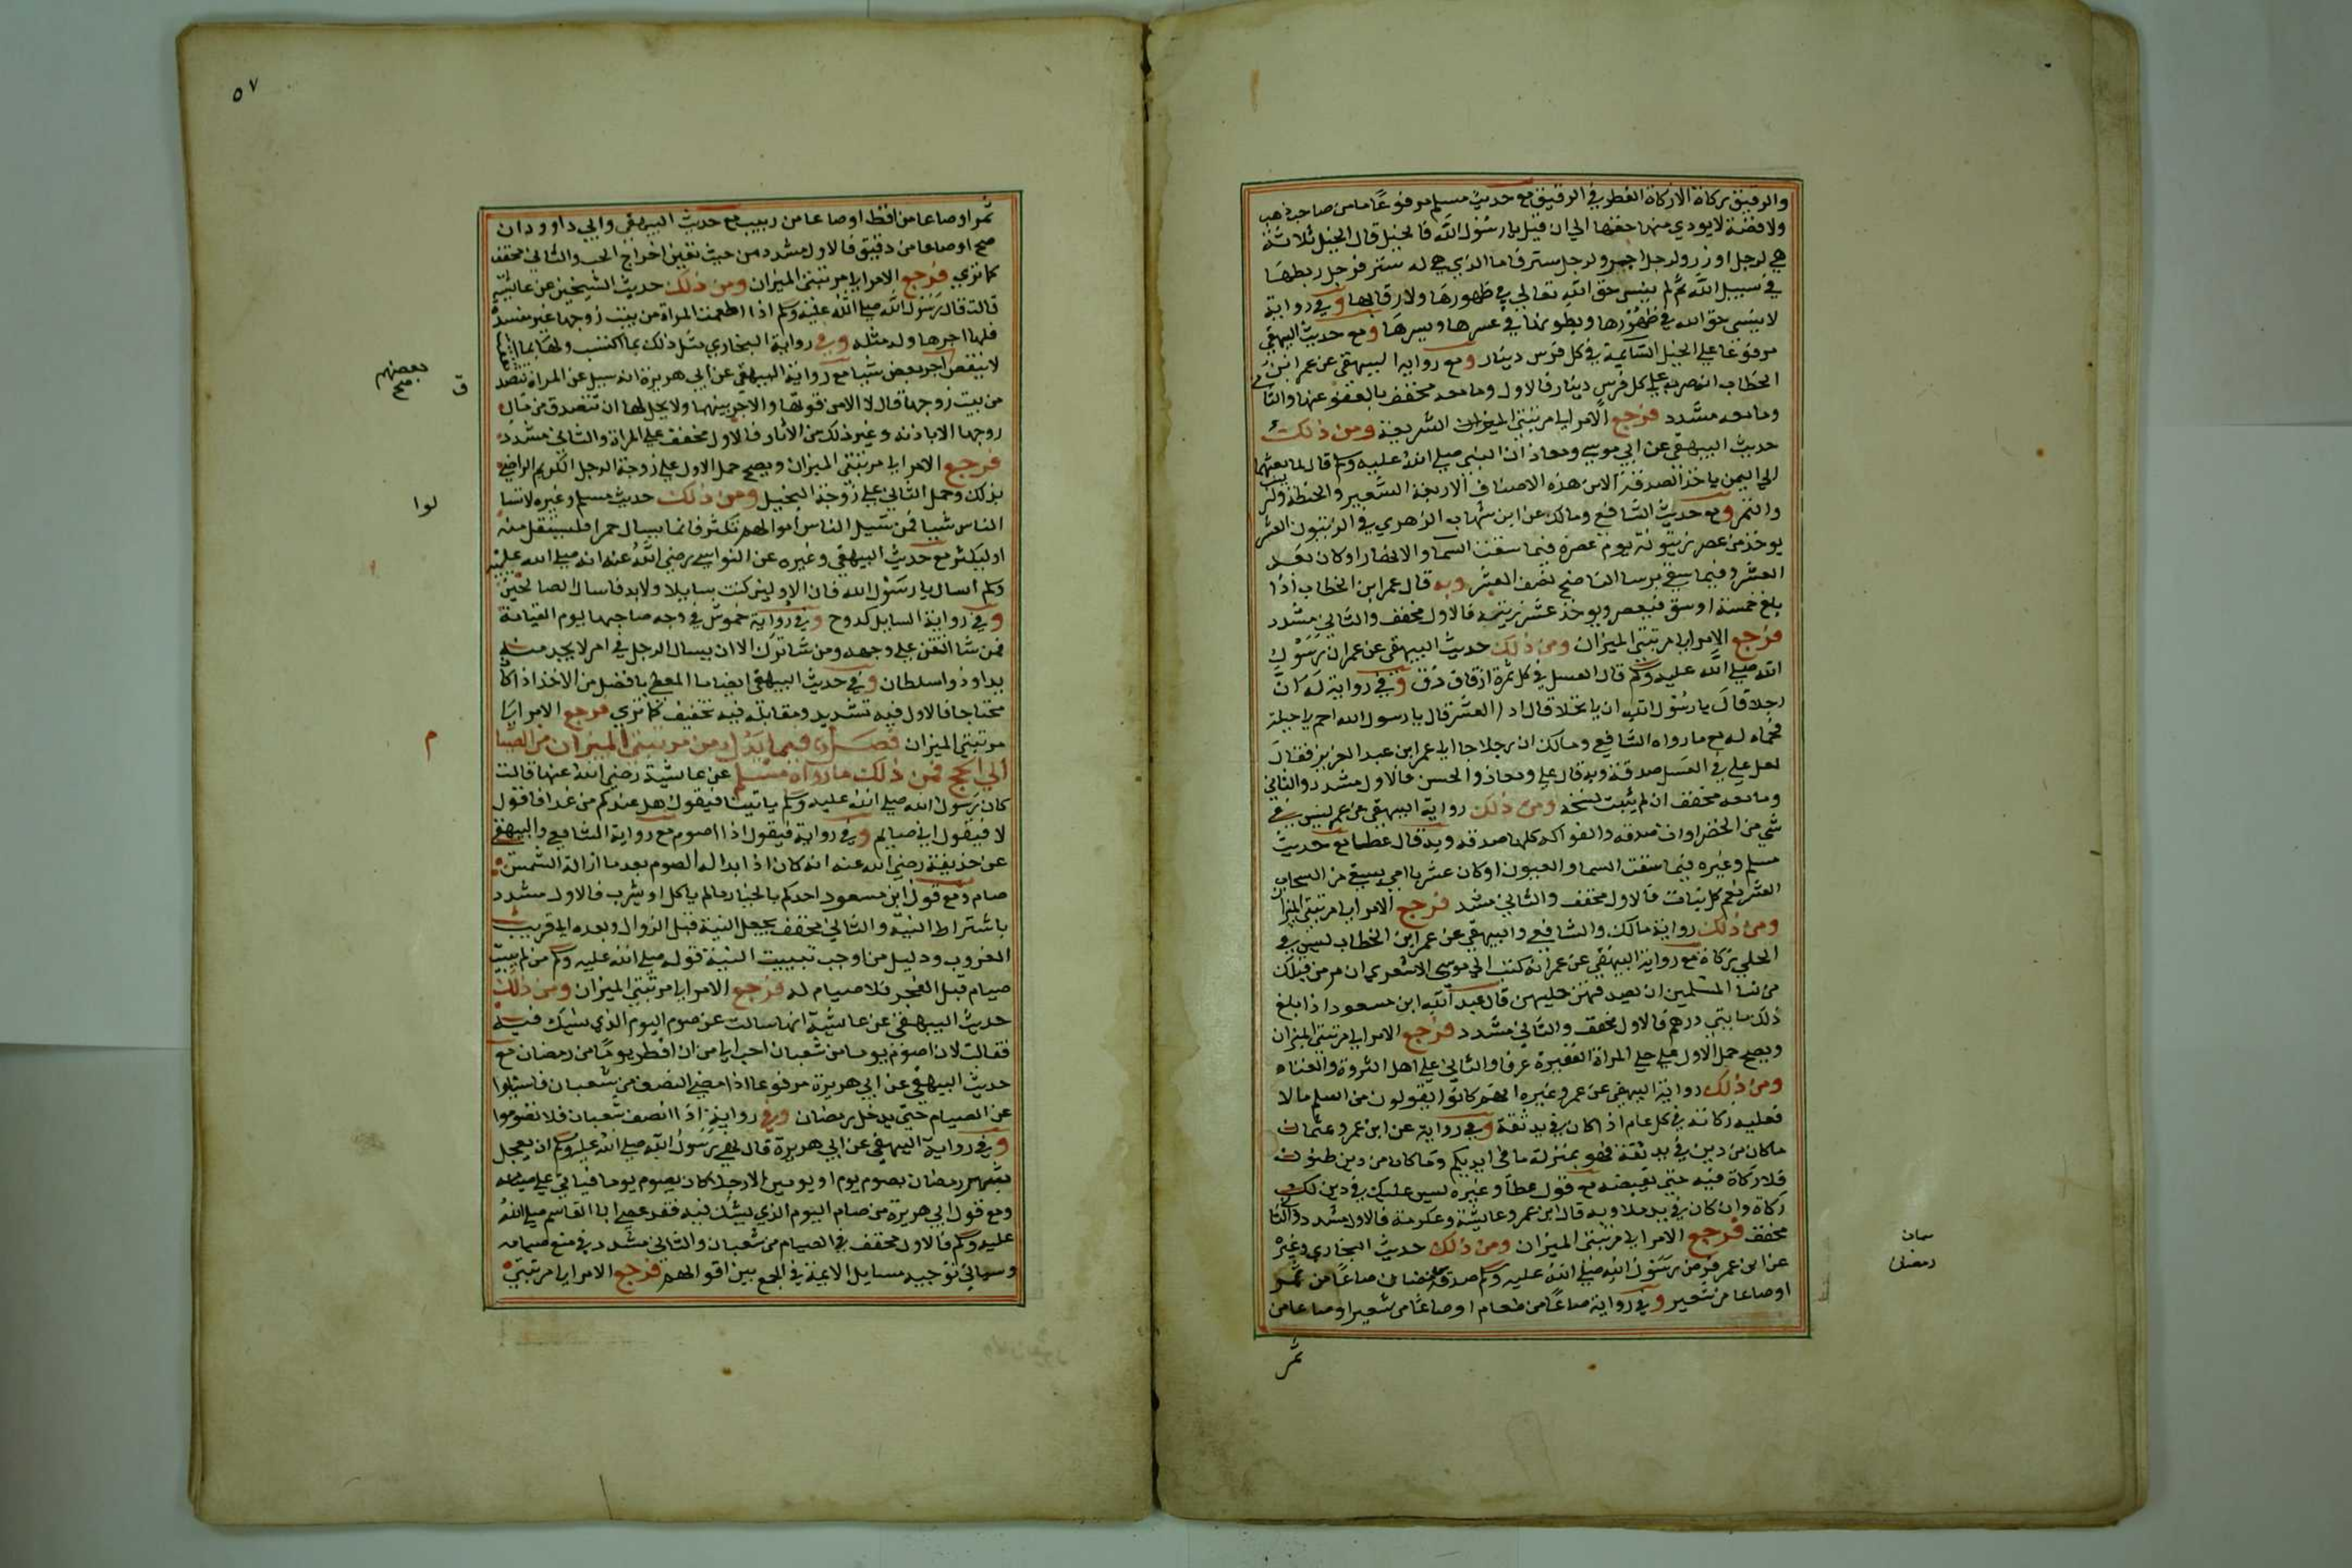 والرقيق زكاة الا زكاة الفطر في الرقيق مع حديث مسلم مرفوعًا ما من صاحب ذهب
ولا فضة لا يودي منها حقها الي ان قيل يا رسول الله فالخيل قال الخيل ثلاثة
هي لرجل اوزر ولرجل اجر ولرجل ستر فاما الذي هي له ستر فرجل ربطها
في سبيل الله ثم لم ينسي حق الله تعالي في ظهورها ولا رقابها وفي رواية
لا ينسي حق الله في ظهورها وبطونها في عسرها ويسرها ومع حديث البيهقي
مرفوعا علي الخيل السايمة في كل فرس دينار ومع رواية البيهقي عن عمر ابن
الخطاب انه ضربه علي كل فرس دينار فالاول وما معه مخفف بالعفو عنها والثا
وما معه مشدد فرجع الامر الي مرتبتي الميزان الشريعة ومن ذلك
حديث البيهقي عن ابي موسي ومعاذ ان النبي صلي الله عليه وسلم قال لما بعثهما
الي اليمن ياخذ الصدقة الا من هذه الاصناف الاربعة الشعير والحنطة والزبيب
والتمر ومع حديث الشافع ومالك عن ابن شهاب الزهري في الزيتون العشر
يوخذ من عصر زيتونة يوم عصره فيما سقت السما والانهار او كان بعد
العشر وفيما سقي برسا الناضح نصف العشر وبه قال عمر ابن الخطاب اذا
بلغ خمسة اوسق فيعصر ويوخذ عشر زيته فالاول مخفف والثاني مشدد
فرجع الامر الي مرتبتي الميزان ومن ذلك حديث البيهقي عن عمر ان رسول
الله صلي الله عليه وسلم قال العسل في كل ازقاق زق وفي رواية له ان
رجلا قال يا رسول الله ان يا نحلا قال اد العشر قال يا رسول الله احم يا جبلة
فحماه له مع ما رواه الشافعي ومالك ان رجلا جا الي عمر ابن عبد العزيز فقال
لعل علي في العسل صدقة وبه قال علي ومعاذ والحسن فالاول مشدد والثاني
وما معه مخفف ان لم يثبت نسخه ومن ذلك رواية البيهقي عن عمر ليس في
شي من الخضراوات صدقة والفواكه كلها صدقه وبه قال عطا مع حديث
مسلم وغيره فيما سقت السما والعيون او كان عشريا اي يسقي من السحاب
العشر نعم كل نبات فالاول مخفف والثاني مشدد فرجع الامر الي مرتبتي الميزان
ومن ذلك رواية مالك والشافعي والبيهقي عن عمر ابن الخطاب ليس في
الحلي زكاة مع رواية البيهقي عن عمر انه كتب الي ابي موسي الاشعري ان مر من قبلك
من نسا المسلمين ان يصدقن حليهن قال عبد الله ابن مسعود اذا بلغ
ذلك مايتي درهم فالاول مخفف والثاني مشدد فرجع الامر الي مرتبتي الميزان
ويصح حمل الاول علي حلي المراة الفقيرة عرفا والثاني علي اهل الثروة والغناء
ومن ذلك رواية البيهقي عن عمر وغيره انهم كانوا يقولون من اسلم مالا
فعليه زكاته في كل عام اذا كان في يد ثقة وفي رواية عن ابن عمر وعثمان
ما كان من دين في يد ثقة فهو بمنزلة ما في ايديكم وما كان من دين ظنون
فلا زكاة فيه حتي يقبضه مع قول عطا وغيره ليس عليك في دين لك
زكاة وان كان في يد ملا وبه قال ابن عمر وعايشة وعكرمة فالاول مشدد والثا
مخفف فرجع الامر الي مرتبتي الميزان ومن ذلك حديث البخاري وغيره
عن ابن عمر فرض رسول الله صلي الله عليه وسلم صدقة رمضان صاعًا من تمر
او صاعا من شعير وفي رواية صاعًا من طعام او صاعًا من شعير او صاعا من
تمر
٥٧
تمر او صاعا من اقط او صاعا من زبيب مع حديث البيهقي وابي داوود ان
صح او صاعا من دقيق فالاول مشدد من حيث تعين اخراج الحب والثاني مخفف
كما تري فرجع الامر الي مرتبتي الميزان ومن ذلك حديث الشيخين عن عايشة
قالت قال رسول الله صلي الله عليه وسلم اذا اطعمت المراة من بيت زوجها غير مفسدة
فلها اجرها وله مثله وفي رواية البخاري مثل ذلك بما اكتسب ولها بما
لا ينقص اجر بعض شيا مع رواية البيهقي عن ابي هريرة انه سيل عن المراة تتصد
بعضهم
صح
ق
من بيت زوجها قال لا الا من قوتها والاجر بينهما ولا يحل لها ان تتصدق من مال
زوجها الا باذنه وغير ذلك من الاثار فالاول مخفف علي المراة والثاني مشدد
فرجع الامر الي مرتبتي الميزان ويصح حمل الاول علي زوجة الرجل الكريم الراضي
بذلك وحمل الثاني علي زوجة البخيل ومن ذلك حديث مسلم وغيره لا تسا
لوا
الناس شيا فمن سيل الناس اموالهم تكثرا فانما يسال جمرا فليستقل منه
او ليكثر مع حديث البيهقي وغيره عن النواسي رضي الله عنه انه صلي الله عليه
وسلم اسال يا رسول الله قال لا وليز كنت سايلا ولا بد فاسال الصالحين
وفي رواية السايل كدوح وفي رواية خموش في وجه صاحبها يوم القيامة
فمن شا القين علي وجهه ومن شا ترك الا ان يسال الرجل في امر لا يجد منه
بدا او ذو اسلطان وفي حديث البيهقي ايضا ما المعطي بافضل من الاخذ اذا كا
محتاجا فالاول فيه تشديد ومقابله فيه تخفيف كما تري فرجع الامر الي
مرتبتي الميزان فصل فيما يدل من مرتبتي الميزان من الصيا
م
الي الحج فمن ذلك ما رواه مسلم عن عايشة رضي الله عنها قالت
كان رسول الله صلي الله عليه وسلم ياتينا فيقول هل عندكم من غدا فاقول
لا فيقول اني صايم وفي رواية فيقول اذا اصوم مع رواية الشافعي والبيهقي
عن حذيفة رضي الله عنه انه كان اذا بدا له الصوم بعد ما ازالت الشمس
صام ومع قول ابن مسعود احدكم بالخيار ما لم ياكل او يشرب فالاول مشدد
باشتراط النية والثاني مخفف بجعل النية قبل الزوال وبعده الي قريب
الغروب ودليل من اوجب تبييت النية قوله صلي الله عليه وسلم من لم يبيت
صيام قبل الفجر فلا صيام له فرجع الامر الي مرتبتي الميزان ومن ذلك
حديث البيهقي عن عايشة انها سالت عن صوم اليوم الذي يشك فيه
فقالت لان اصوم يوما من شعبان احب الي من ان افطر يومًا من رمضان مع
حديث البيهقي عن ابي هريرة مرفوعا اذا مضي النصف من شعبان فامسكوا
عن الصيام حتي يدخل رمضان وفي رواية اذا انصف شعبان فلا تصوموا
وفي رواية البيهقي عن ابي هريرة قال نهي رسول الله صلي الله عليه وسلم ان يعجل
شهر رمضان بصوم يوم او يومين الا رجلا كان يصوم يوما فياتي علي صيامه
ومع قول ابي هريرة من صام اليوم الذي يشك فيه فقد عصي ابا القاسم صلي الله
عليه وسلم فالاول مخفف في الصيام من شعبان والثاني مشدد في منع صيامه
وسياتي توجيه مسايل الايمة في الجمع بين اقوالهم فرجع الامر الي مرتبتي